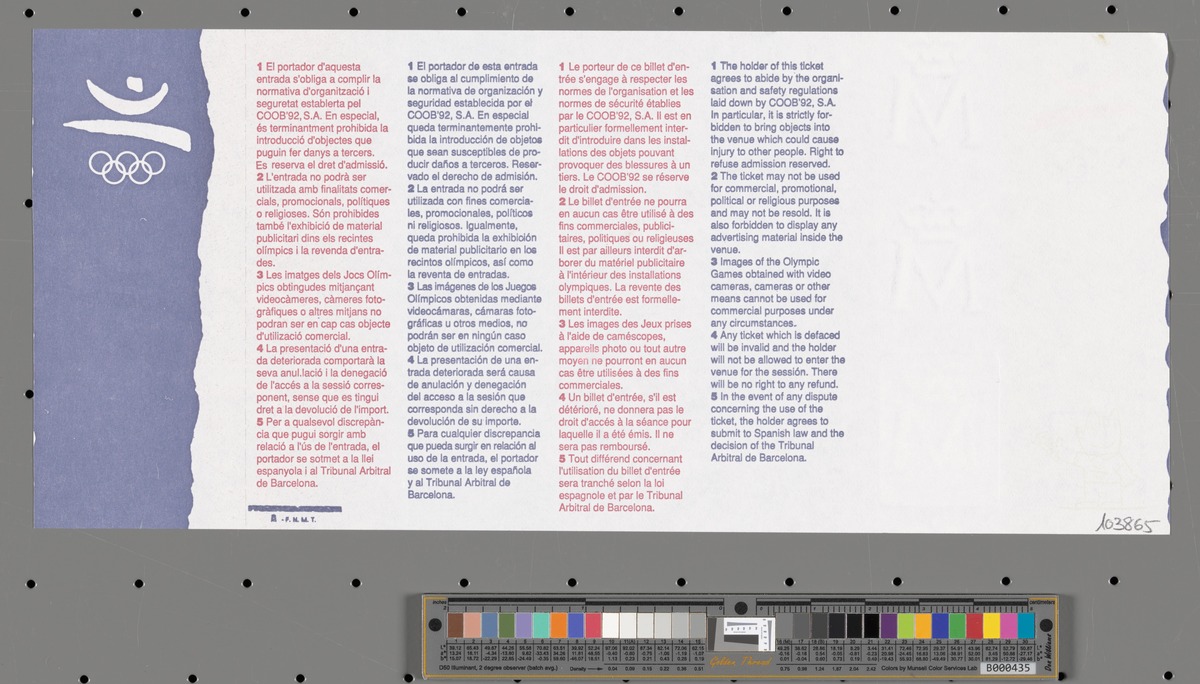 1 El portador d'aquesta
entrada s'obliga a complir la
normativa d'organització i
seguretat establerta pel
COOB'92, S.A. En especial,
és terminantment prohibida la
introducció d'objectes que
puguin fer danys a tercers.
Es reserva el dret d'admissió.
2 L'entrada no podrà ser
utilitzada amb finalitats comer-
cials, promocionals, polítiques
o religioses. Són prohibides
també l'exhibició de material
publicitari dins els recintes
olímpics i la revenda d'entra-
des.
3 Les imatges dels Jocs Olím-
pics obtingudes mitjançant
videocàmeres, càmeres foto-
gràfiques o altres mitjans no
podran ser en cap cas objecte
d'utilizació comercial.
4 La presentació d'una entra-
da deteriorada comportarà la
seva anul.lació i la denegació
de l'accés a la sessió corres-
ponent, sense que es tingui
dret a la devolució de l'import.
5 Per a qualsevol discrepàn-
cia que pugui sorgir amb
relació a l'ús de l'entrada, el
portador se sotmet a la llei
espanyola i al Tribunal Arbitral
de Barcelona.
- F. N. M. T.
1 El portador de esta entrada
se obliga al cumplimiento de
la normativa de organización y
seguridad establecida por el
COOB'92, S.A. En especial
queda terminantemente prohi-
bida la introducción de objetos
que sean susceptibles de pro-
ducir daños a terceros. Reser-
vado el derecho de admisión.
2 La entrada no podrá ser
utilizada con fines comercia-
les, promocionales, políticos
ni religiosos. Igualmente,
queda prohibida la exhibición
de material publicitario en los
recintos olímpicos, así como
la reventa de entradas.
3 Las imágenes de los Juegos
Olímpicos obtenidas mediante
videocámaras, cámaras foto-
gráficas u otros medios, no
podrán ser en ningún caso
objeto de utilización comercial.
4 La presentación de una en-
trada deteriorada será causa
de anulación y denegación
del acceso a la sesión que
corresponda sin derecho a la
devolución de su importe.
5 Para cualquier discrepancia
que pueda surgir en relación al
uso de la entrada, el portador
se somete a la ley española
y al Tribunal Arbitral de
Barcelona.
1 Le porteur de ce billet d'en-
trée s'engage à respecter les
normes de l'organisation et les
normes de sécurité établies
par le COOB'92, S.A. Il est en
particulier formellement inter-
dit d'introduire dans les instal-
lations des objets pouvant
provoquer des blessures à un
tiers. Le COOB'92 se réserve
le droit d'admission.
2 Le billet d'entrée ne pourra
en aucun cas être utilisé à des
fins commerciales, publici-
taires, politiques ou religieuses
Il est par ailleurs interdit d'ar-
borer du matériel publicitaire
à l'intérieur des installations
olympiques. La revente des
billets d'entrée est formelle-
ment interdite.
3 Les images des Jeux prises
à l'aide de caméscopes,
appareils photo ou tout autre
moyen ne pourront en aucun
cas être utilisées à des fins
commerciales.
4 Un billet d'entrée, s'il est
détérioré, ne donnera pas le
droit d'accés à la séance pour
laquelle il a été émis. Il ne
sera pas remboursé.
5 Tout différend concernant
l'utilisation du billet d'entrée
sera tranché selon la loi
espagnole et par le Tribunal
Arbitral de Barcelona.
1 The holder of this ticket
agrees to abide by the organi-
sation and safety regulations
laid down by COOB'92, S.A.
In particular, it is strictly for-
bidden to bring objects into
the venue which could cause
injury to other people. Right to
refuse admission reserved.
2 The ticket may not be used
for commercial, promotional,
political or religious purposes
and may not be resold. It is
also forbidden to display any
advertising material inside the
venue.
3 Images of the Olympic
Games obtained with video
cameras, cameras or other
means cannot be used for
commercial purposes under
any circumstances.
4 Any ticket which is defaced
will be invalid and the holder
will not be allowed to enter the
venue for the sessión. There
will be no right to any refund.
5 In the event of any dispute
concerning the use of the
ticket, the holder agrees to
submit to Spanish law and the
decision of the Tribunal
Arbitral de Barcelona.
103865
inches
centimetres
Golden Thread
D50 Illuminant, 2 degree observer
Density
Colors by Munsell Color Services Lab
B000435